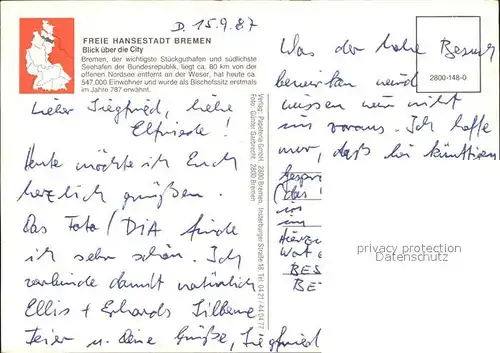 D. 15.9.87
FREIE HANSESTADT BREMEN
Blick über die City
Bremen, der wichtigste Stückguthafen und südlichste
Seehafen der Bundesrepublik, liegt ca. 80 km von der
offenen Nordsee entfernt an der Weser, hat heute ca.
547.000 Einwohner und wurde als Bischofssitz erstmals
im Jahre 787 erwähnt.
Lieber Siegfried, liebe
Elfriede!
Heute möchte ich Euch
herzlich grüßen.
Das Foto/DIA finde
ich sehr schön. Ich
verbinde damit natürlich
Ellis + Erhards Silberne
Feier u. Deine Grüße, Siegfried
Verlag: Papeterie GmbH, 2800 Bremen, Insterburger Straße 18, Tel. 04 21 / 44 04 77
Foto: Günter Garbrecht, 2800 Bremen
2800-148-0
Was der hohe Besuch
bewirken wird
wissen wir nicht
im voraus. Ich hoffe
nur, daß bei künftigen
Gespr
(das
im
im
Wat
BES
BE
privacy protection
oldthing.de